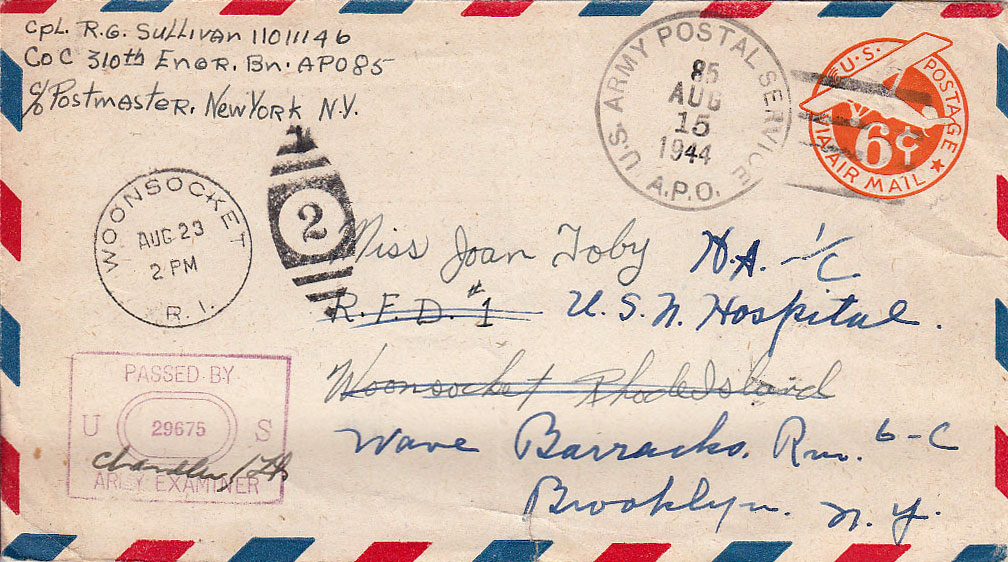 Cpl. R.G. Sullivan 11011146
Co C 310th Engr. Bn. APO 85
c/o Postmaster, New York N.Y.
U.S. ARMY POSTAL SERVICE
85
AUG
15
1944
A.P.O.
U.S. POSTAGE
6¢
VIA AIR MAIL
WOONSOCKET
AUG 23
2 PM
R.I.
2
Miss Joan Toby H.A. - 1/C.
R.F.D. #1 U.S.N. Hospital.
Woonsocket Rhode Island
Wave Barracks, Rm. 6-C
Brooklyn. N.Y.
PASSED BY
U 29675 S
ARMY EXAMINER